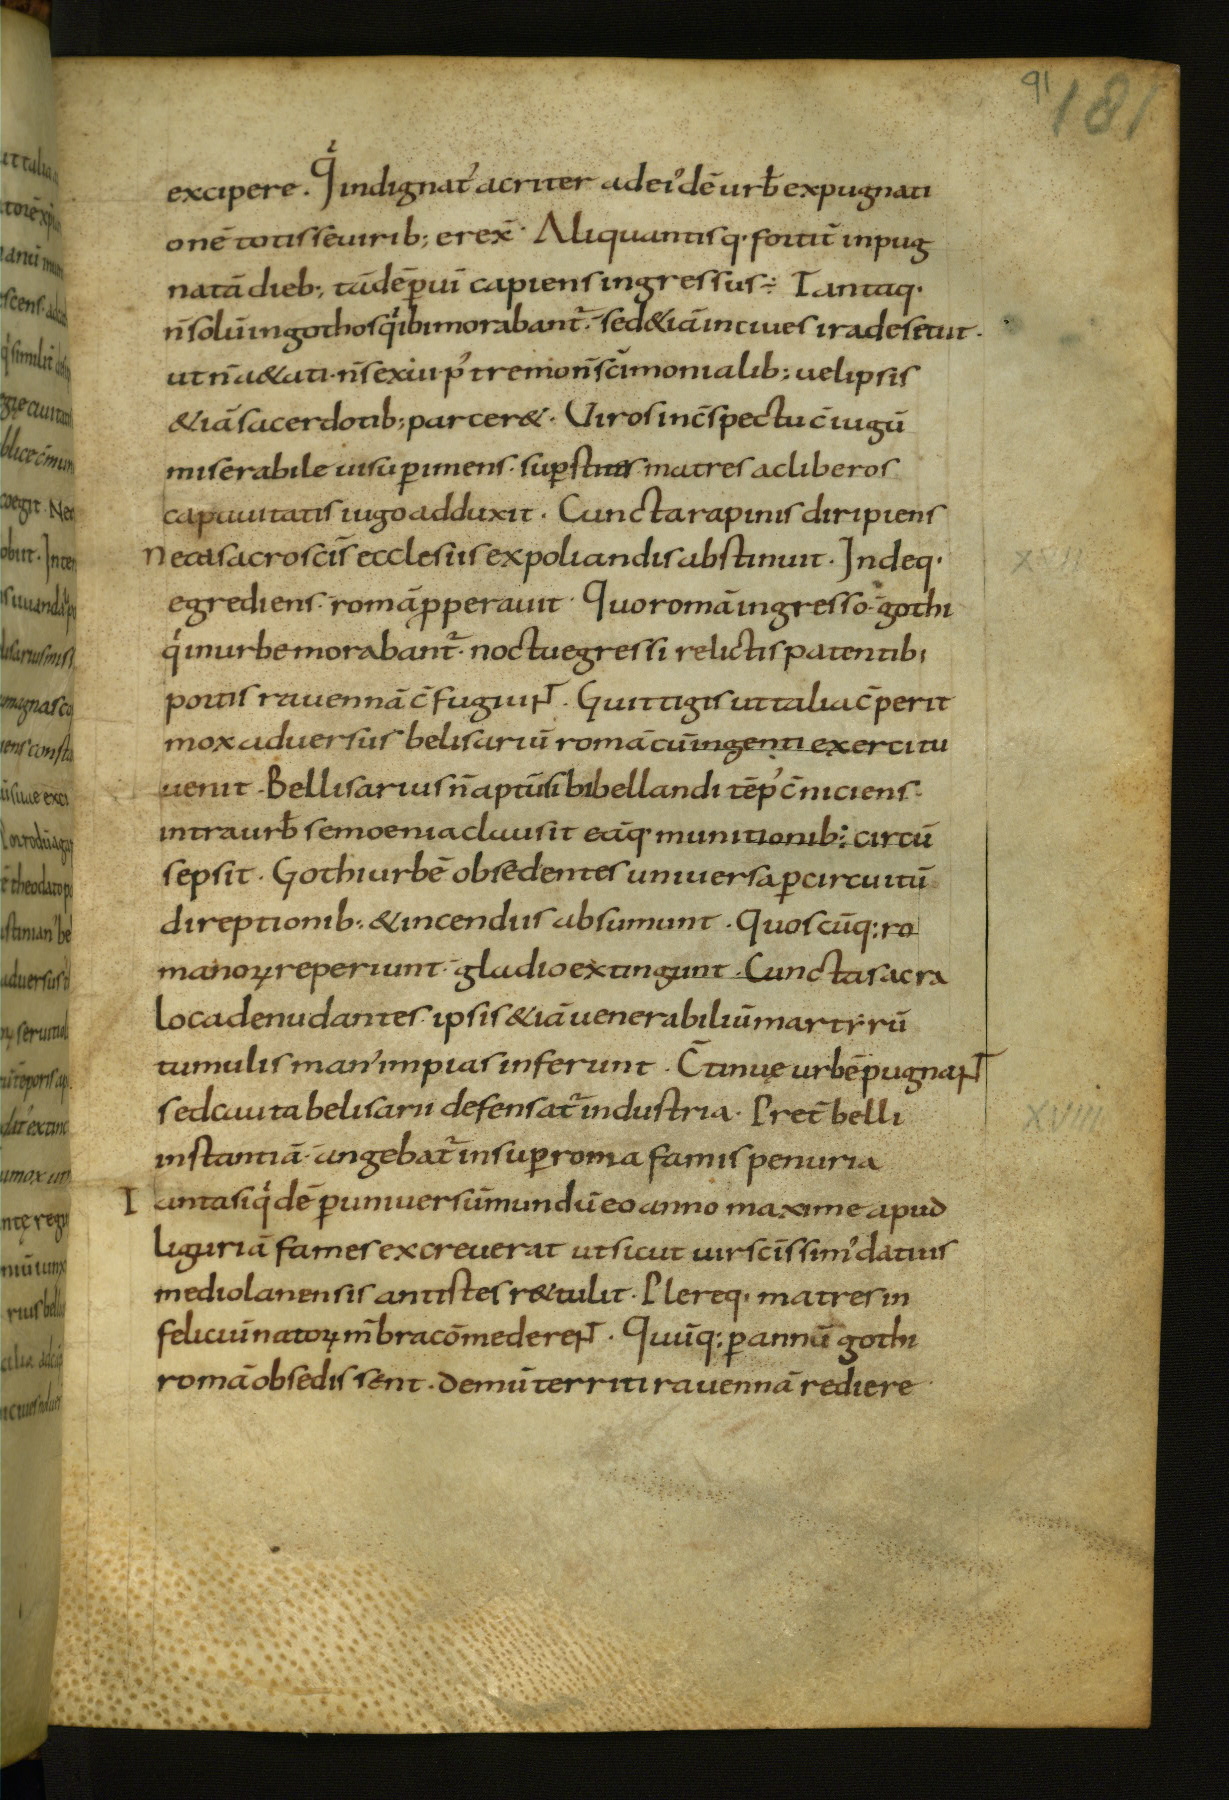 91 181
excipere. Qͥ indignat᾽ acriter ad ei᾽dē urb̄ expugnati
onē totis se uirib; erex̄. Aliquantisq. fortit̄ inpug
natā dieb; tādē p̱ uī capiens ingressus; Tantaq.
n̄ solū in gothos qͥ ibi morabant᷑. sed &iā in ciues ira deseuiit.
ut n̄ a&ati. n̄ sexiu p᾽tremo n̄ sc̄imonialib; uel ipsis
&iā sacerdotib; parcer&. Uiros in c̄spectu c̄iugū
miserabile uisu p̱imens. sup̱stites matres ac liberos
captiuitatis iugo adduxit. Cuncta rapinis diripiens
Nec a sacroscīs ecclesiis expoliandis abstinuit. Indeq.
egrediens. romā p̱perauit. Quo romā ingresso. gothi
qͥ in urbe morabant᷑. noctu egressi relictis patentib;
portis rauennā c̄fugiuNT. Guittigis ut talia c̄perit
mox aduersus belisariū romā cū ingenti exercitu
uenit. Bellisarius n̄ aptū sibi bellandi tēp᾽ c̄niciens.
intra urb̄ se moenia clausit eāq munitionib; circū
sepsit. Gothi urbē obsedentes uniuersa p̱ circuitū
direptionib; & incendiis absumunt. Quoscūq; ro
manoꝝ reperiunt. gladio extingunt. Cuncta sacra
loca denudantes. ipsis &iā uenerabiliū martyrū
tumulis man᾽ impias inferunt. C̄tinuę urbē pugnaNT
sed cauta belisarii defensat᷑ industria. Pret̄ belli
instantiā. angebat᷑ insup̱ roma famis penuria
Tanta siqͥdē p̱ uniuersū mundū eo anno maxime apud
liguriā fames excreuerat ut sicut uir scīssim᾽ datius
mediolanensis antistes r&tulit. Plereq; matres in
feliciū natoꝝ m̄bra cōmedereNT. Quūq; p̱ annū gothi
romā obsedissent. demū territi rauennā rediere
XVIII